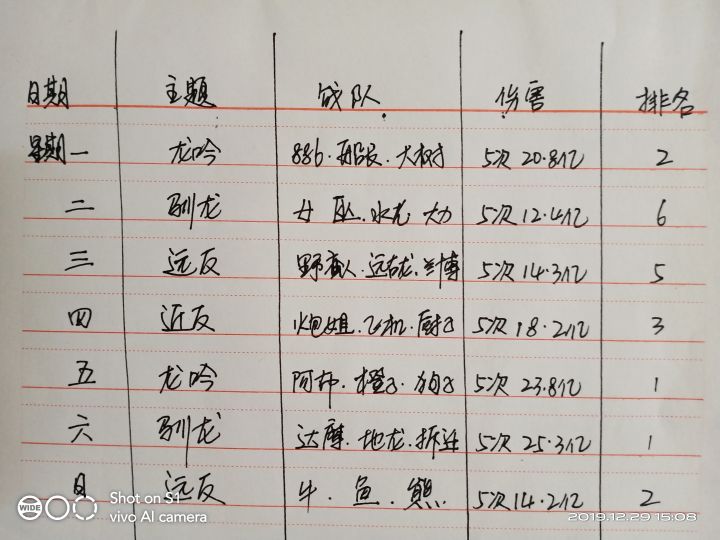 日期 主题 战队 伤害 排名
星期一 龙吟 886·船长·大树 5次 20.8亿 2
二 驯龙 女巫·水龙 大力 5次 12.4亿 6
三 远反 野蛮人·远古龙·兰博 5次 14.3亿 5
四 近反 炮姐·飞机·厨子 5次 18.2亿 3
五 龙吟 阿布·橙子·狗子 5次 23.8亿 1
六 驯龙 达摩·地龙·拆迁 5次 25.3亿 1
日 远反 牛·鱼·熊 5次 14.2亿 2
WIDE Shot on S1
vivo AI camera
2019.12.29 15:08